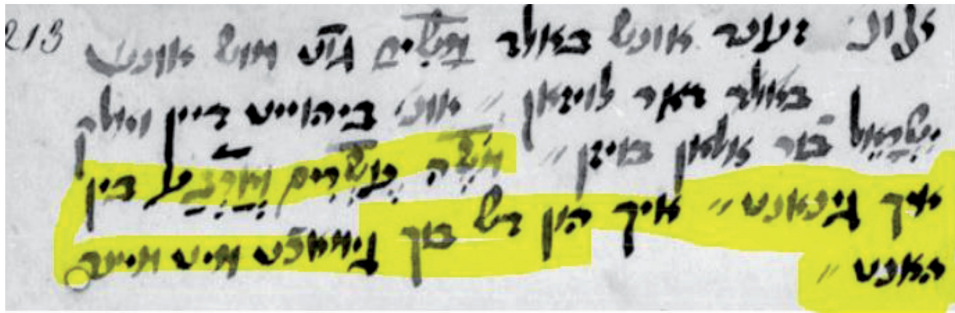 213
זענד אונש באלד מָשִׁיחַ גוט מוש אונש
באלד דאר לויזן ״ אונ׳ ביהוייט דיין וואלק
יִשְׂרָאֵל בור אלאן בויזן ״ מֹשֶׁה עֶשְׂרִים וְאַרְבַּע בין
איך גינאנט ״ איך הון דש בוך גימאכֿט מיט מיינר
האנט ״